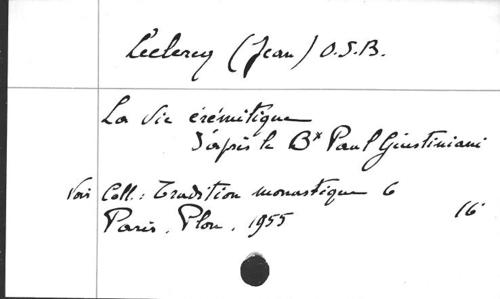 Leclercq (Jean) O.S.B.
La Vie érémitique
d'après le Bx Paul Giustiniani
Voir Coll.: Tradition monastique 6
Paris, Plon, 1955 16°